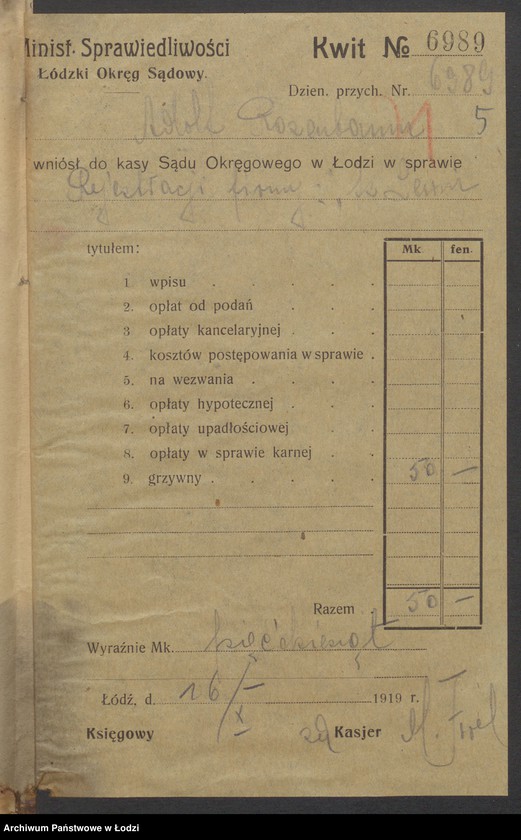 Minist. Sprawiedliwości
Łódzki Okręg Sądowy.
Kwit № 6989
Dzien. przych. Nr. 6989
Adolf Rozenbaum 5
wniósł do kasy Sądu Okręgowego w Łodzi w sprawie
Rejestracji firmy:
tytułem: Mk fen.
1 wpisu . . . . .
2. opłat od podań . . .
3 opłaty kancelaryjnej . . .
4. kosztów postępowania w sprawie .
5. na wezwania . . . .
6. opłaty hypotecznej . . .
7. opłaty upadłościowej . .
8. opłaty w sprawie karnej . .
9. grzywny . . . . . 50 —
Razem . . 50 —
Wyraźnie Mk. pięćdziesiąt
Łódź, d. 16/X 1919 r.
Księgowy za Kasjer
Archiwum Państwowe w Łodzi